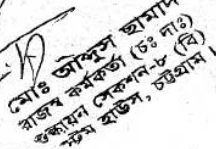 মোঃ আব্দুস ছামাদ
রাজস্ব কর্মকর্তা (চঃ দাঃ)
শুল্কায়ন সেকশন-৮ (বি)
কাস্টম হাউস, চট্টগ্রাম।